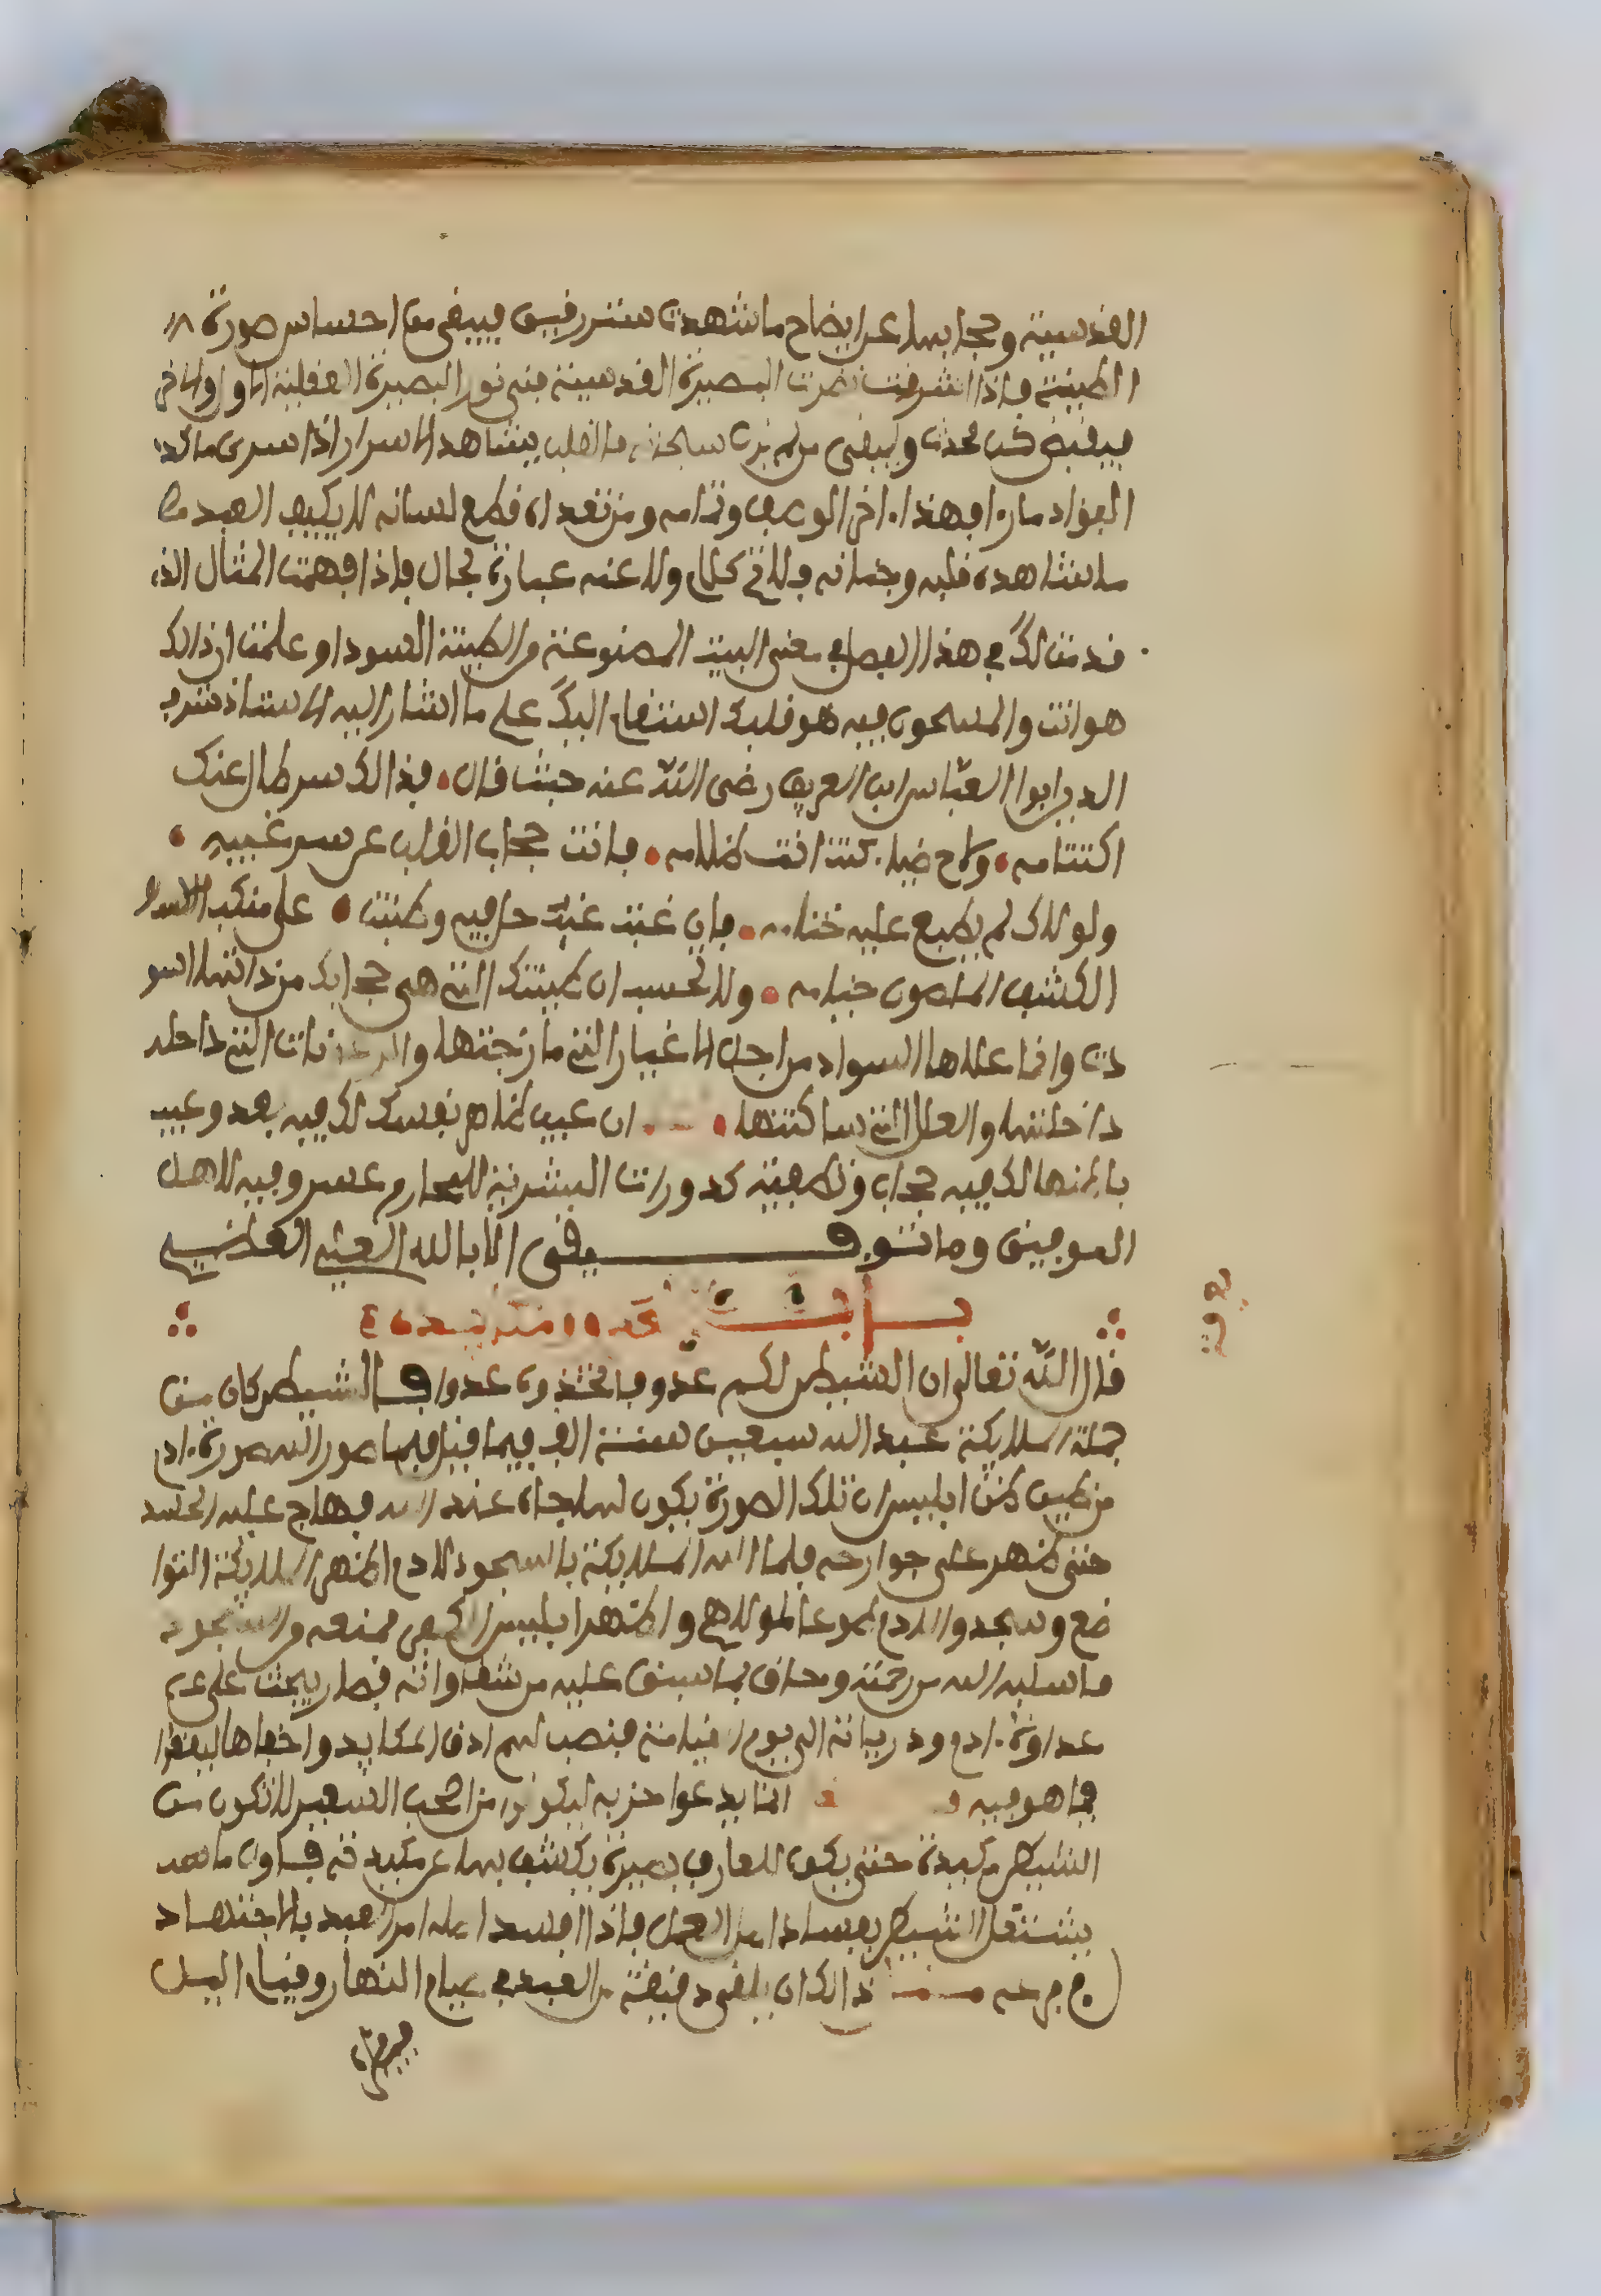 القدسية وحجابها عن ايضاح ما شهدت ستر رقيق فيبقى مع احساس صورة
الطينة فاذا اشرقت نظرت البصيرة القدسية فنى نور البصيرة العقلية
فيقبض من محدث ويبقى من لم يزل سبحانه فالقلب يشاهد الاسرار اذا سرى ما كذب
الفؤاد ما را فهذا اخر الوصف وتمامه ومن تعداه قطع لسانه لا يكيف العبد
ما شاهده قلبه وجنانه ولا في كلام ولا عنه عبارة بحال فاذا فهمت المثال الذ
قدمت لك في هذا الفصل في معنى البيت المصنوعة من الطينة السودا وعلمت ان ذالك
هو انت والمسجون فيه هو قلبك استقام اليك على ما اشار اليه الاستاذ شرف
الدين ابوا العباس ابن العريف رضي الله عنه حيث قال فذالك سر طال عنك
اكتتامه ولاح ضياء كنت انت ظلامه فانت حجاب القلب عن سر غيبه
ولولاك لم يطبع عليه ختامه فان غبت عنه حل فيه وطنبت على منكب
الكشف المصون خيامه ولا تحسب ان طينتك التي هي حجابك من ذاتها اسو
دت وانما علاها السواد من اجل الاغيار التي مازجتها والرعونات التي داخله
داخلتها والعلل التي ساكنتها ان عيب ظاهر نفسك لك فيه بعد وعيب
باطنها لك فيه حجاب وتصفية كدورات البشرية للمحارم عسر وفيه لاهل
العوفين وما توفيقي الا بالله العلي العظيم
باب
قال الله تعالى ان الشيطن لكم عدو فاتخذوه عدوا فالشيطن كان من
جملة الملايكة عبد الله سبعين سنة الف فيما قيل فلما صور الله صورة ادم
من طين ظن ابليس ان تلك الصورة يكون لها جاه عند الله فهاج عليه الحسد
حتى ظهر على جوارحه فلما امر الله الملايكة بالسجود لادم اظهر الملايكة التوا
ضع وسجدوا لادم طوعا لمولاهم واظهر ابليس الكبر فمنعه من السجود
فاسلبه الله من رحمته وحاق بما سبق عليه من شقاواته فصار يبحث على
عداوة ادم ودرياته الى يوم القيامة فنصب لهم ادق المكايد واخفاها ليقعوا
فيما هو فيه انما يدعوا حزبه ليكونوا من اصحب السعير لا تكون من
الشيطن مكيدة حتى يكون للعارف بصيرة يكشف بها عن مكيدته فاول ما
يشتغل الشيطن بفساد العمل فاذا افسد امر العبد بالاجتهاد
ذالك ان يلقى دقيقة العبد في صيام النهار وقيام اليل